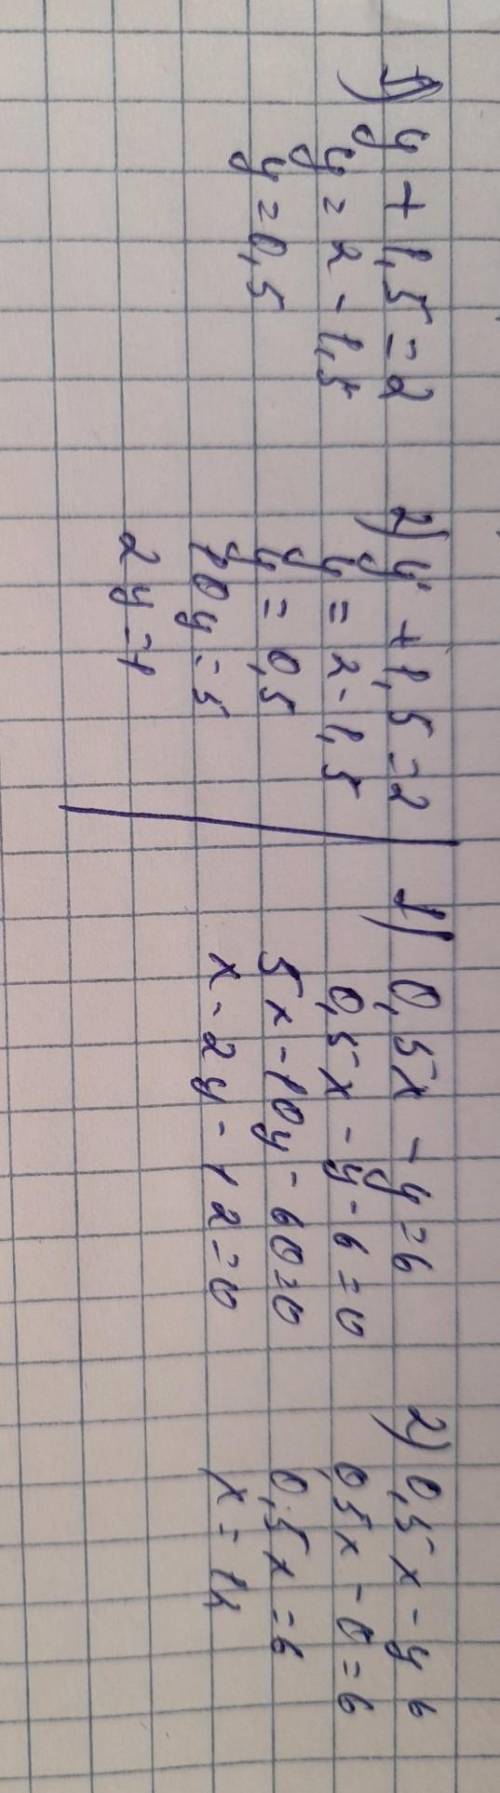 1) y + 1,5 = 2
y = 2 - 1,5
y = 0,5
2) y + 1,5 = 2
y = 2 - 1,5
y = 0,5
10y = 5
2y = 1
1) 0,5x - y = 6
0,5x - y - 6 = 0
5x - 10y - 60 = 0
x - 2y - 12 = 0
2) 0,5x - y 6
0,5x - 0 = 6
0,5x = 6
x = 12